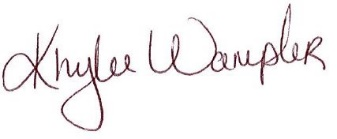 Knylee Wampler